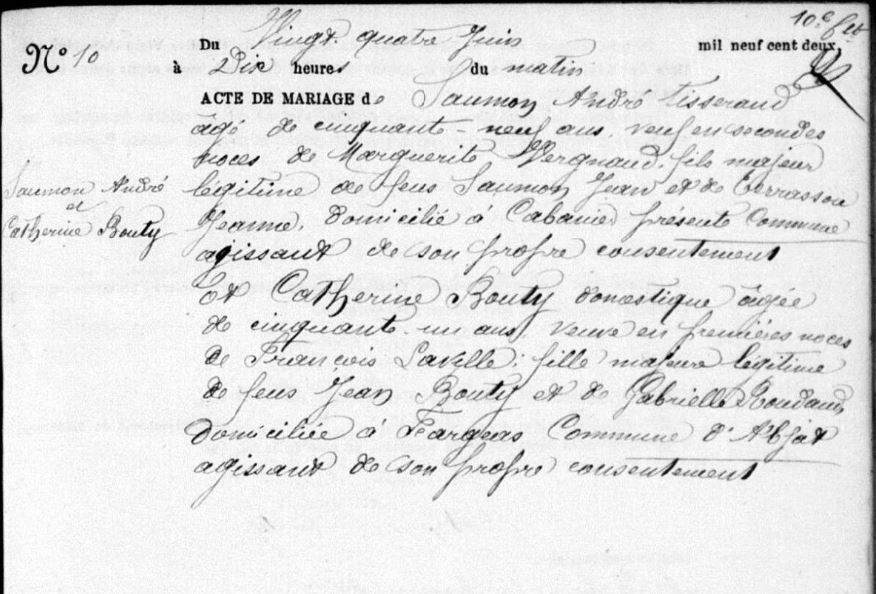 10.e f.to
N° 10
Du Vingt quatre Juin mil neuf cent deux,
à Dix heures du matin
ACTE DE MARIAGE de Saumon André tisserand
agé de cinquante-neuf ans, veuf en secondes
noces de Marguerite Vergnaud, fils majeur
Saumon André
et
Catherine Bouty
légitime de feus Saumon Jean et de Terrasson
Jeanne, domicilié à Cabanier présente Commune
agissant de son propre consentement
Et Catherine Bouty domestique âgée
de cinquante-un ans, veuve en premières noces
de François Laville; fille majeure légitime
de feus Jean Bouty et de Gabrielle Roudaud
domiciliée à Fargeas Commune d'Abjat
agissant de son propre consentement